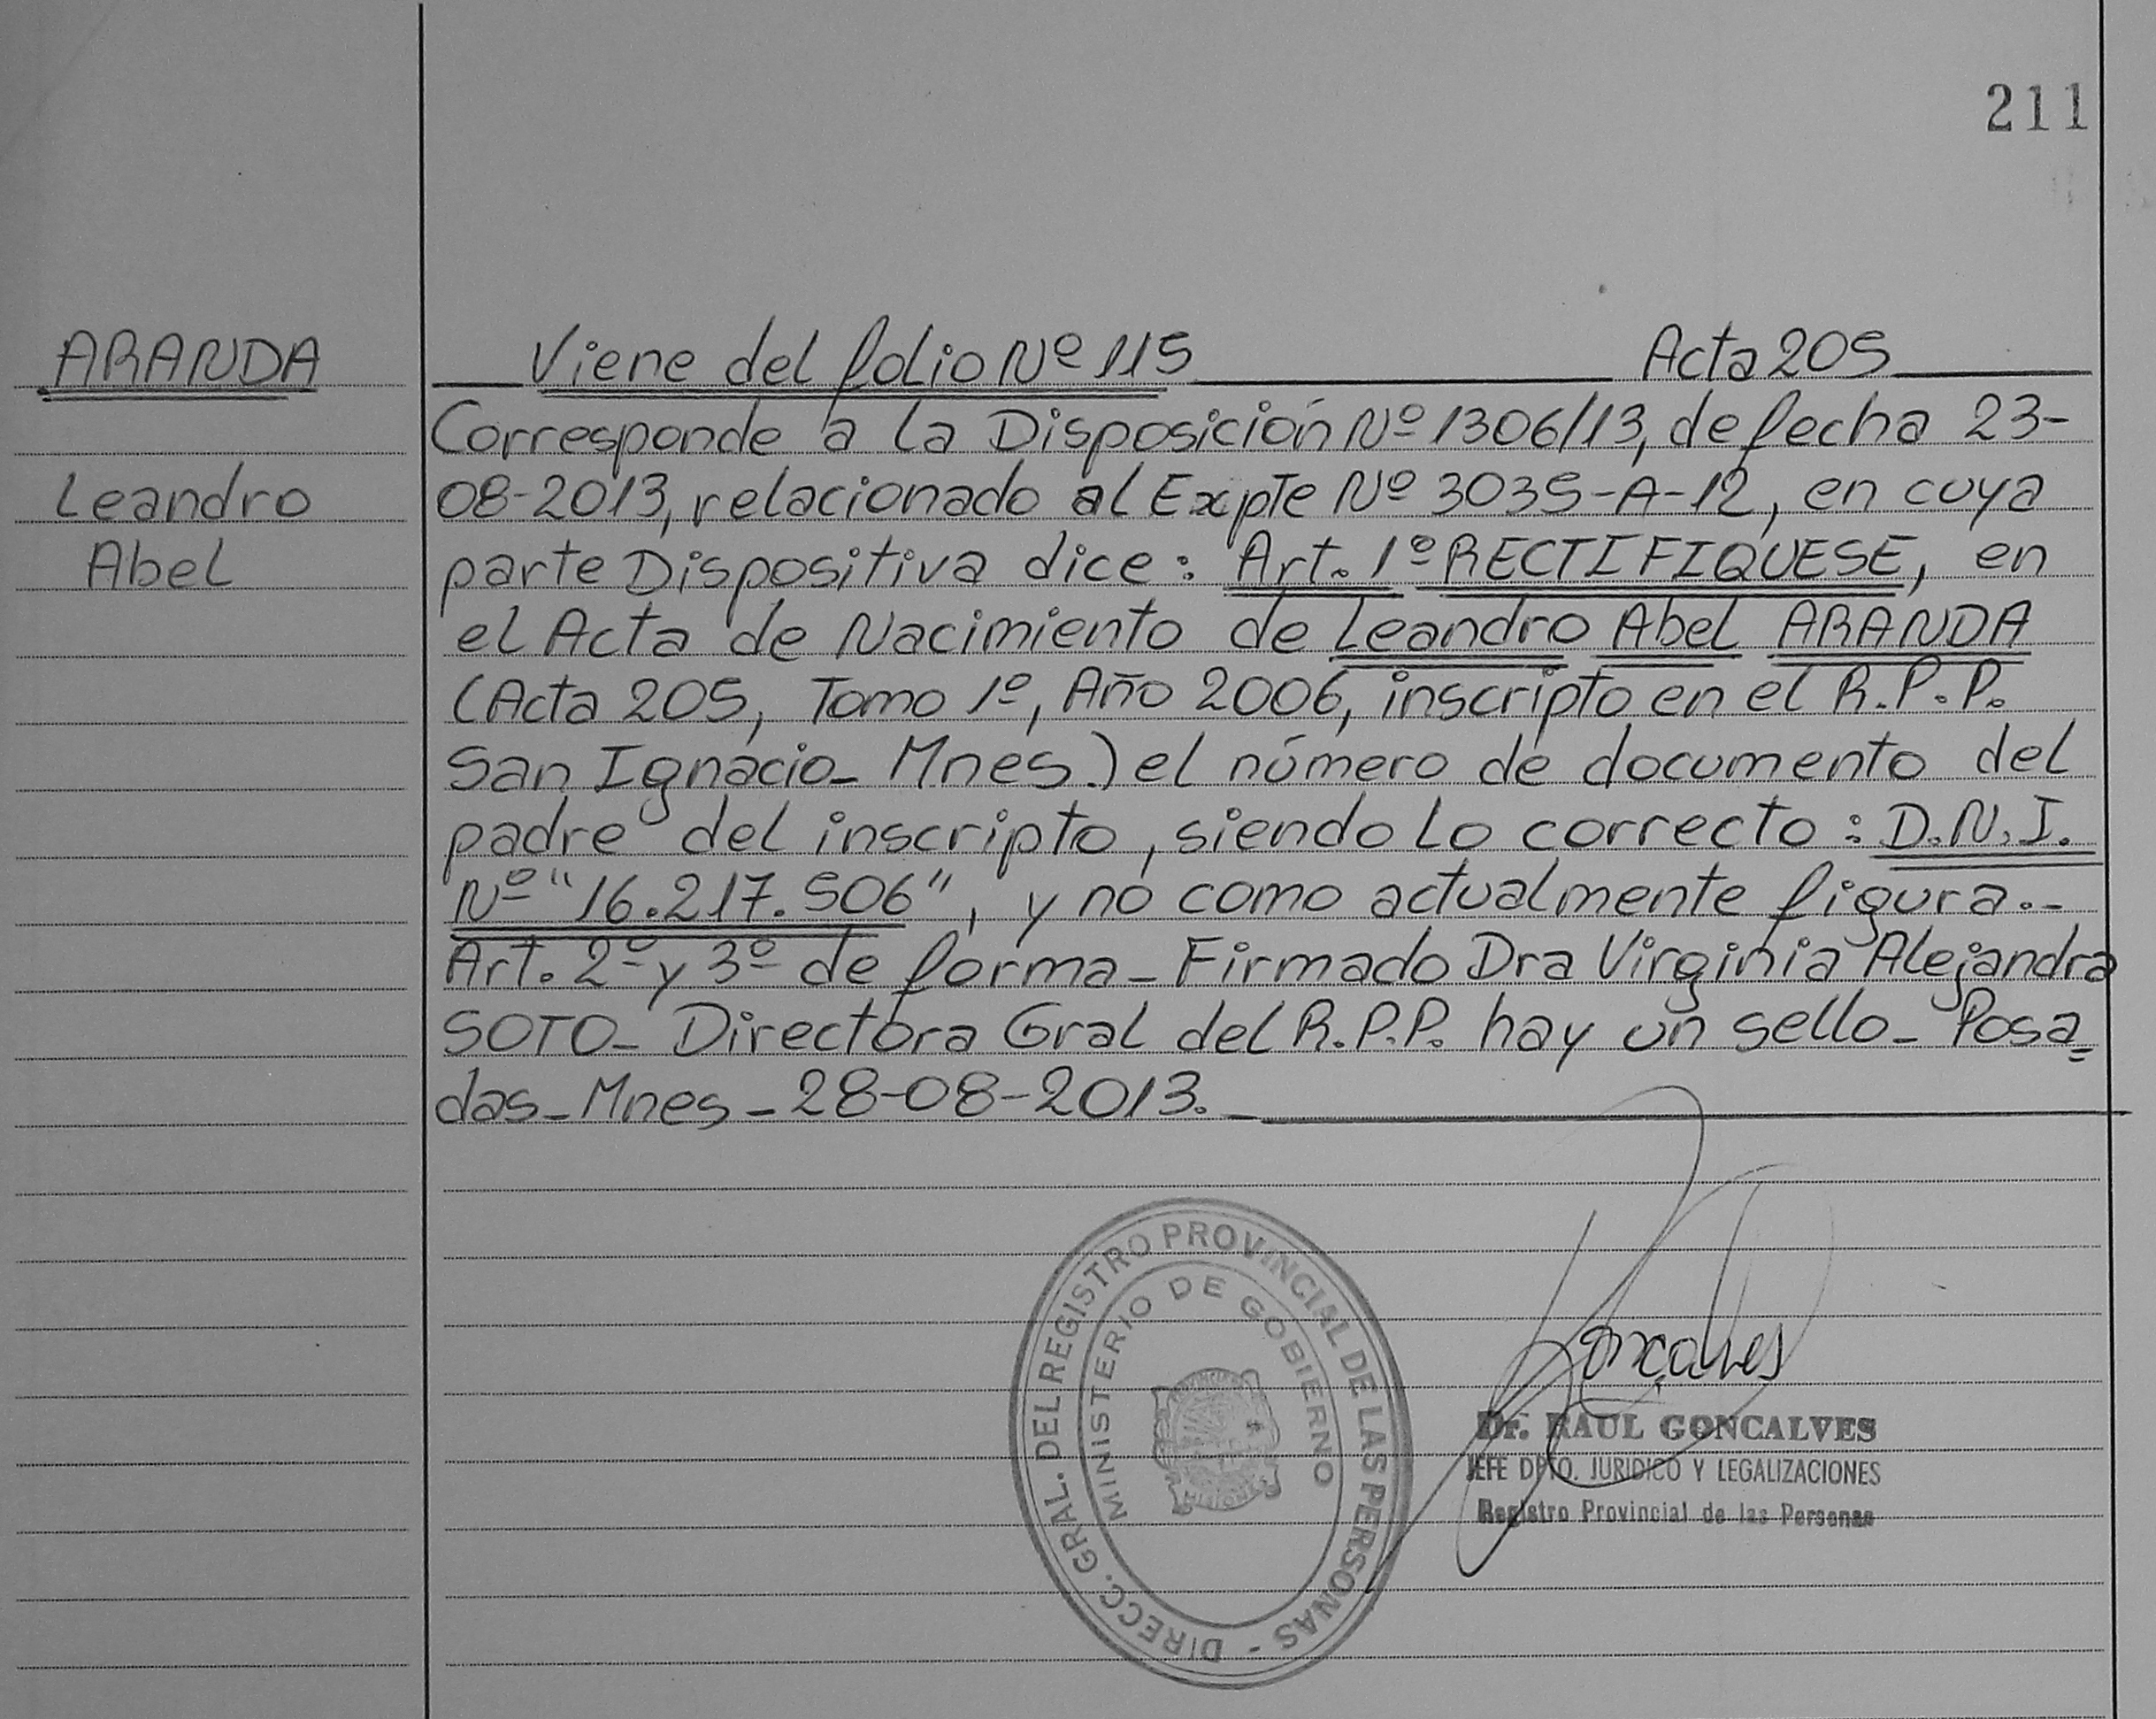 211
ARANDA
Leandro
Abel
Viene del folio Nº 115 Acta 205
Corresponde a la Disposición Nº 1306/13, de fecha 23-
08-2013, relacionado al Expte Nº 3035-A-12, en cuya
parte Dispositiva dice: Art. 1º RECTIFIQUESE, en
el Acta de Nacimiento de Leandro Abel ARANDA
(Acta 205, Tomo 1º, Año 2006, inscripto en el R.P.P.
San Ignacio- Mnes.) el número de documento del
padre del inscripto, siendo lo correcto: D.N.I.
Nº "16.217.506", y no como actualmente figura.-
Art. 2º y 3º de forma- Firmado Dra Virginia Alejandra
SOTO- Directora Gral del R.P.P. hay un sello- Posa=
das- Mnes- 28-08-2013.-
DIRECC. GRAL. DEL REGISTRO PROVINCIAL DE LAS PERSONAS -
MINISTERIO DE GOBIERNO
PROVINCIA
MISIONES
Gonçalves
Dr. RAUL GONCALVES
JEFE DPTO. JURIDICO Y LEGALIZACIONES
Registro Provincial de las Personas